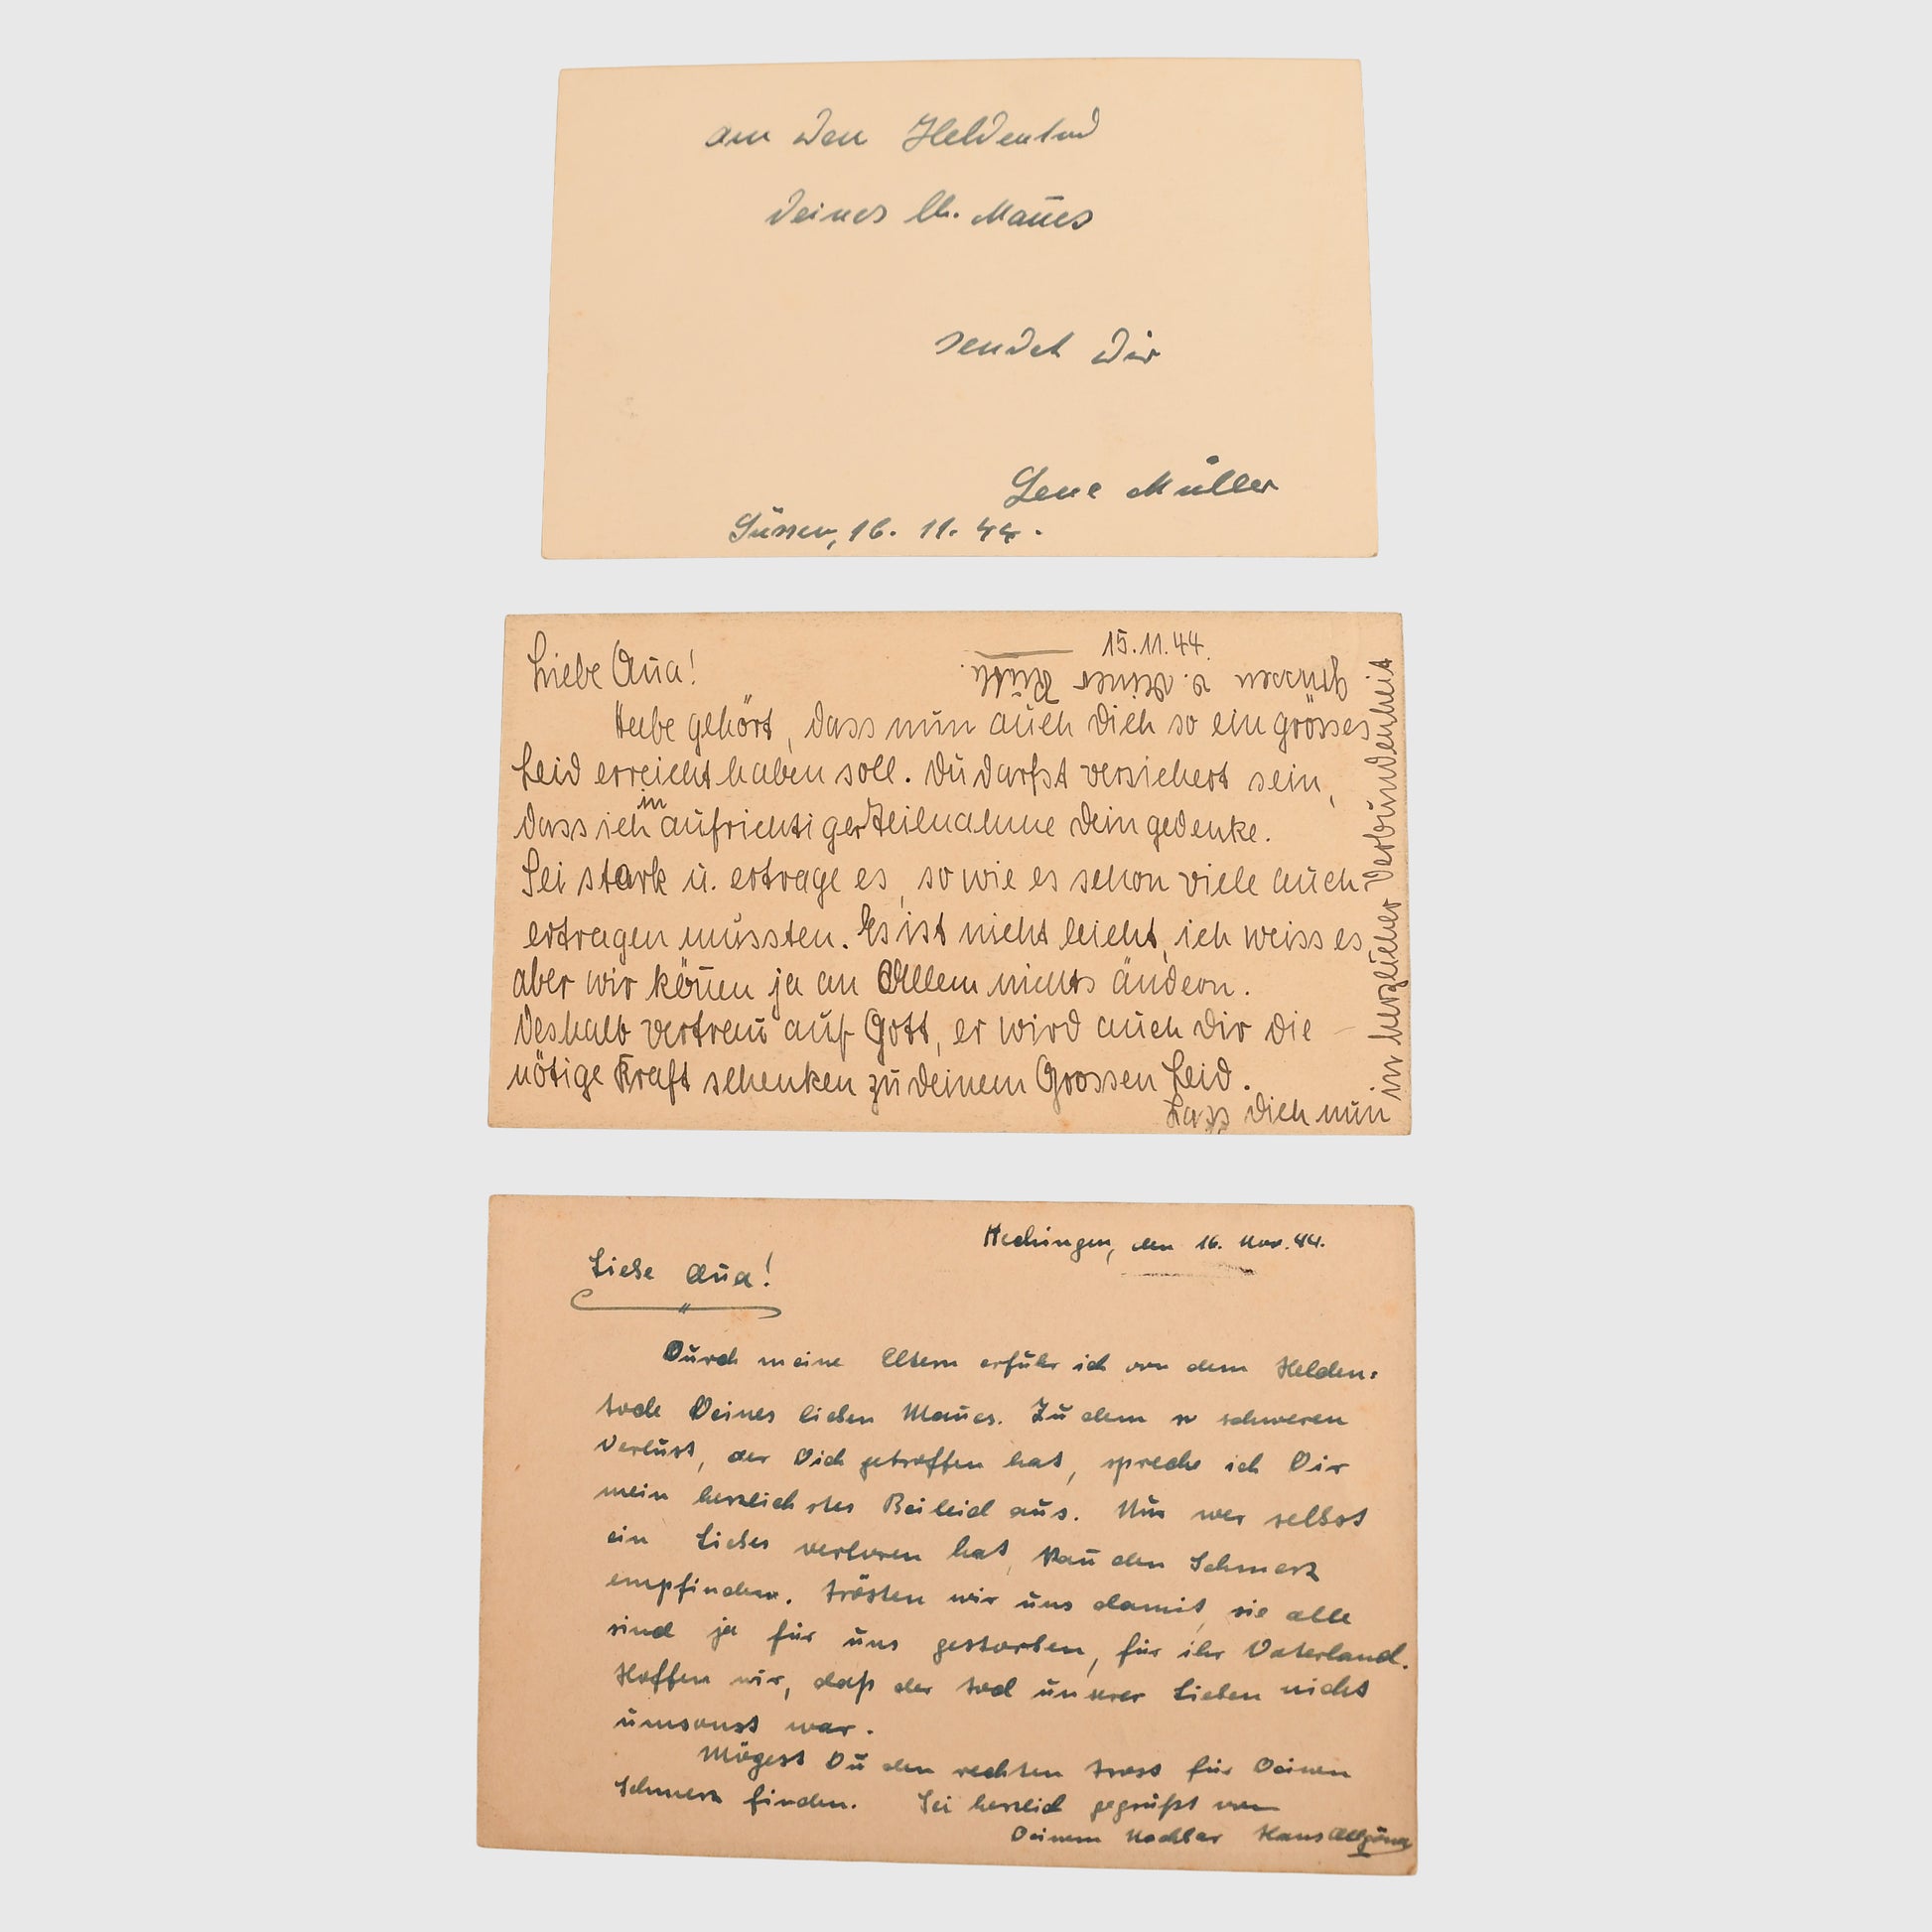 an den Heldentod
deines lb. Mañes
sendet dir
Lene Müller
Süssen, 16. 11. 44.
15.11.44.
Liebe Aña!
Habe gehört, dass nun auch dich so ein grosses
Leid erreicht haben soll. Du darfst versichert sein,
dass ich in aufrichtiger Teilnahme dein gedenke.
Sei stark u. ertrage es, so wie es schon viele auch
ertragen mussten. Es ist nicht leicht, ich weiss es,
aber wir köñen ja an Allem nichts ändern.
Deshalb vertrau auf Gott, er wird auch dir die
nötige Kraft schenken zu deinem Grossen Leid.
Lass dich nun
in herzlicher Verbundenheit
grüssen v. deiner
Hechingen, den 16. Nov. 44.
Liebe Aña!
Durch meine Eltern erfuhr ich von dem Helden=
tode Deines lieben Mañes. Zu dem so schweren
Verlust, der Dich getroffen hat, spreche ich Dir
mein herzlichstes Beileid aus. Nur wer selbst
ein Liebes verloren hat, kañ den Schmerz
empfinden. Trösten wir uns damit, sie alle
sind ja für uns gestorben, für ihr Vaterland.
Hoffen wir, daß der Tod unserer Lieben nicht
umsonst war.
Mögest Du den rechten Trost für Deinen
Schmerz finden. Sei herzlich gegrüßt von
Deinem Nachbar Hans